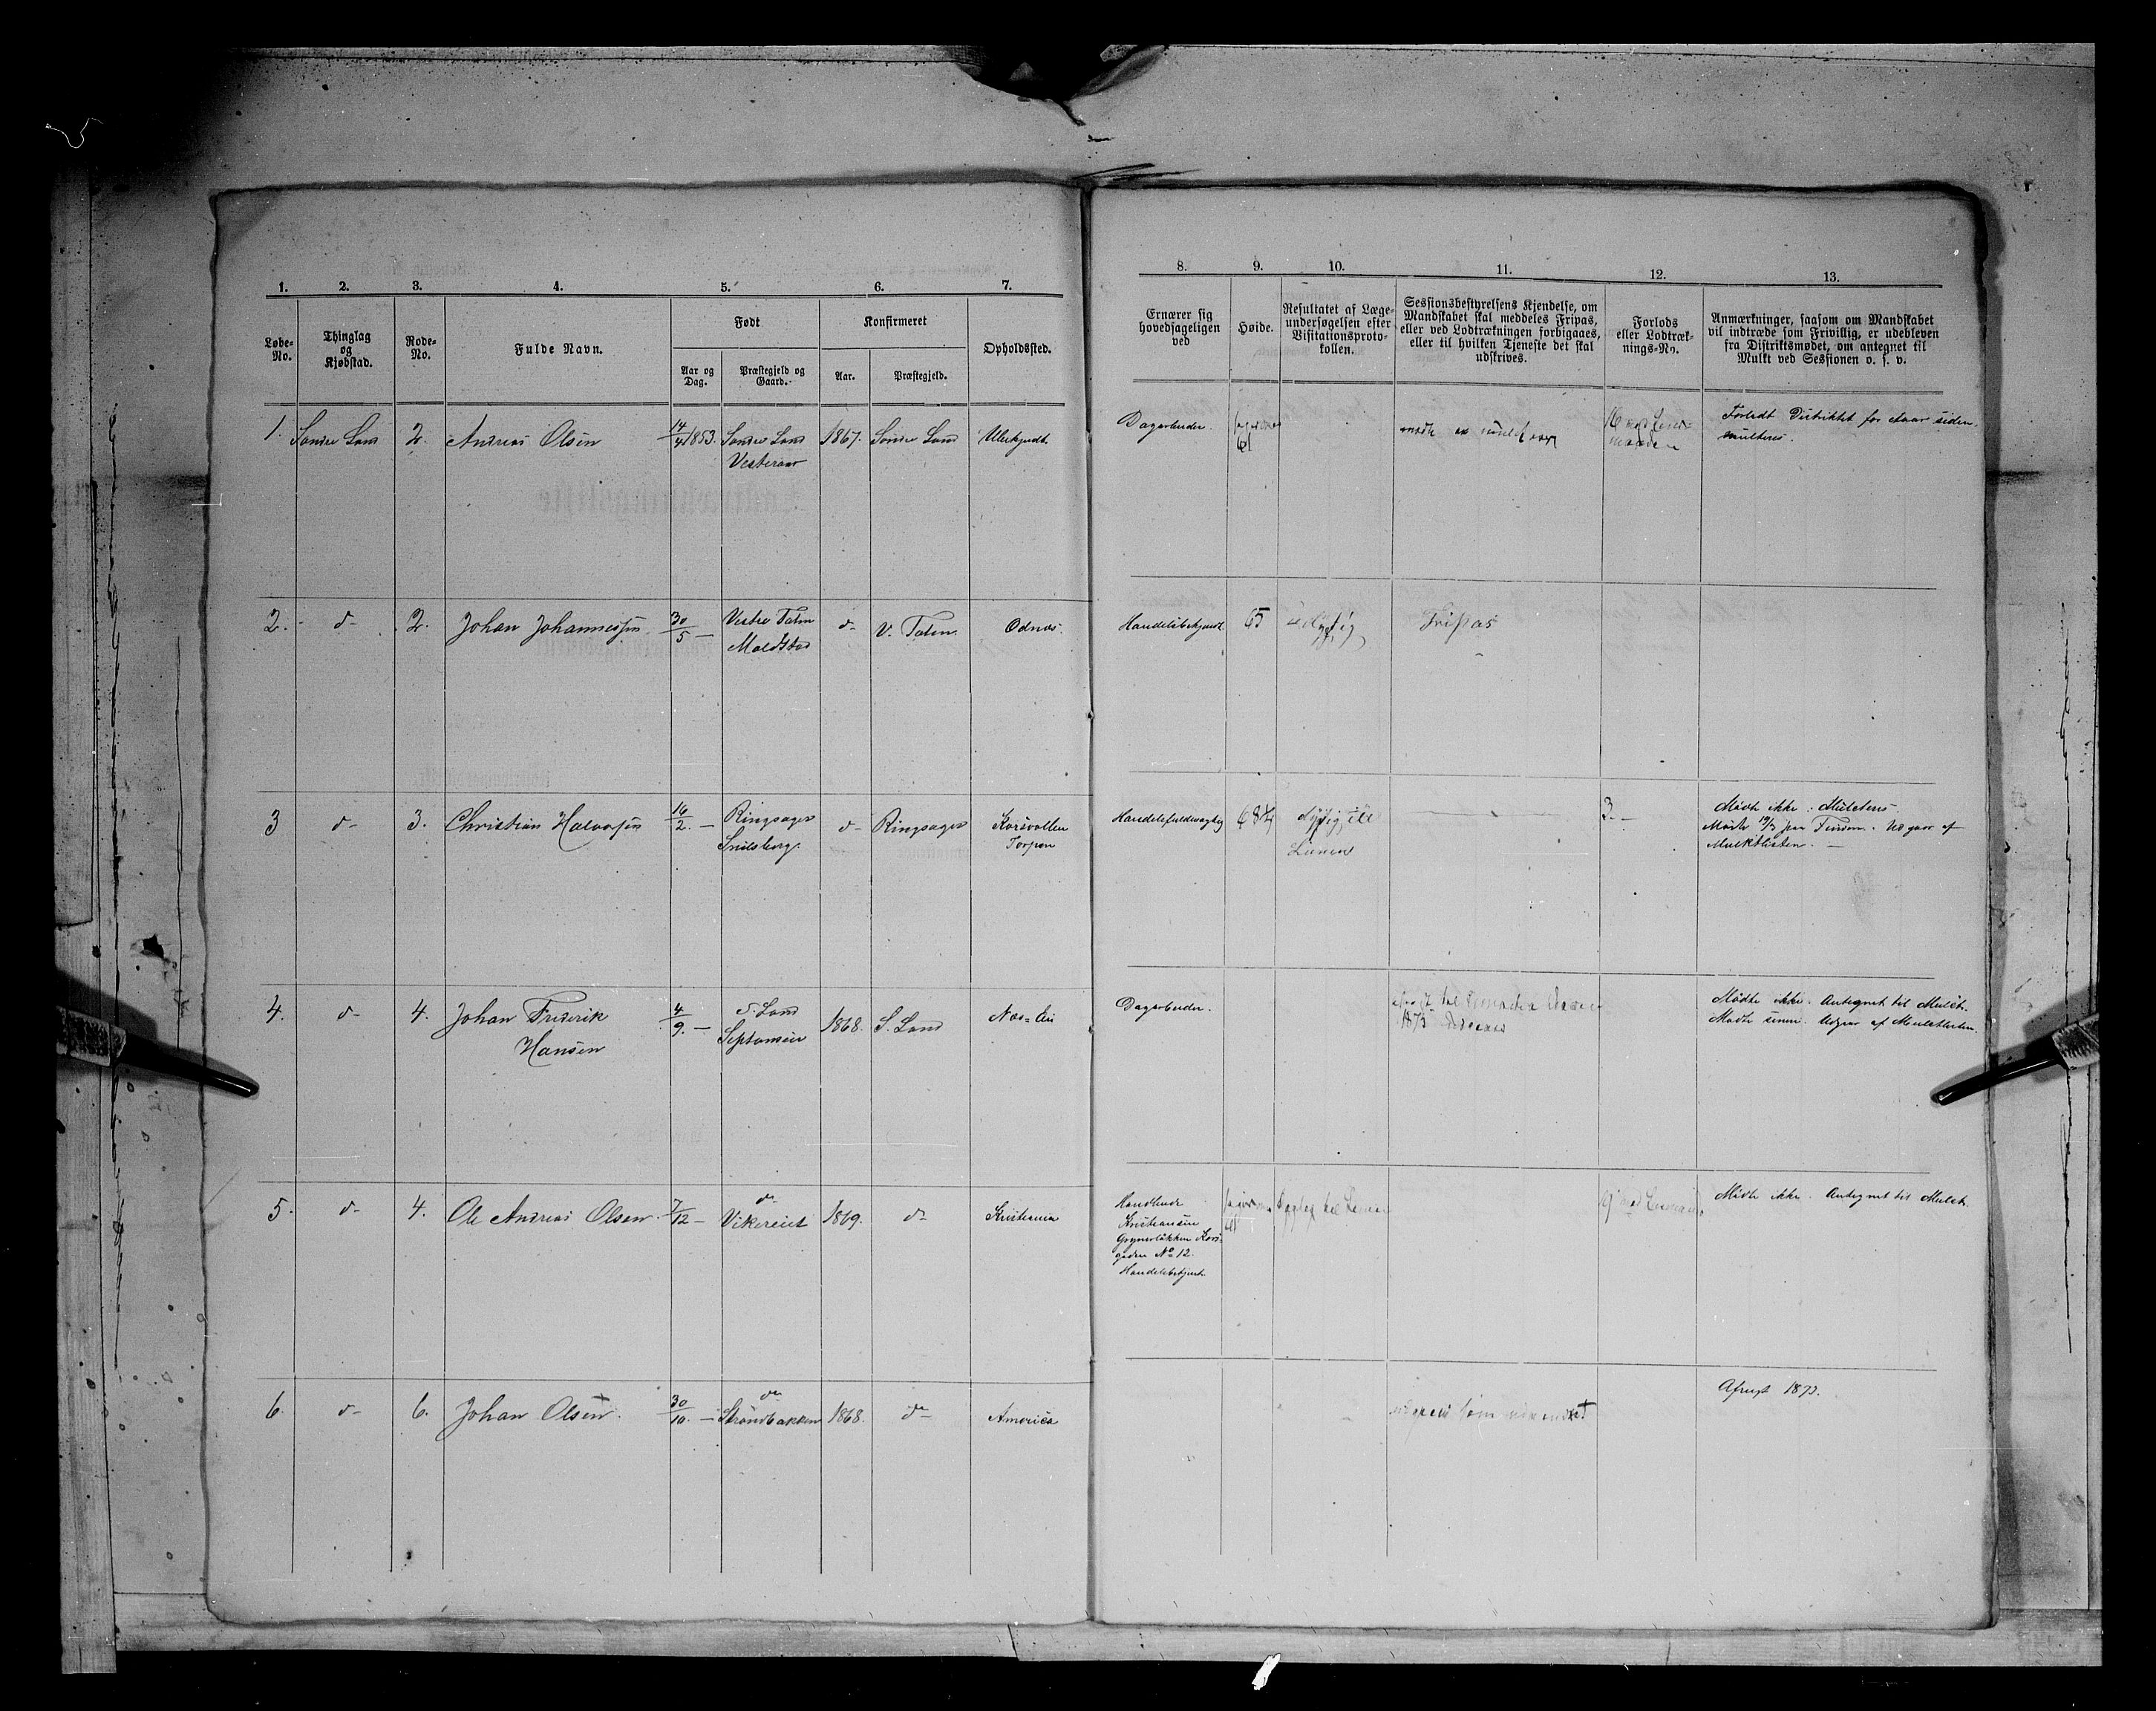 1. 2. 3. 4. 5. 6. 7.
Løbe-No. Thinglag og Kjøbstad. Rode-No. Fulde Navn. Født Konfirmeret Opholdssted.
Aar og Dag. Præstegjeld og Gaard. Aar. Præstegjeld.
1. Søndre Land 2. Andreas Olsen 14/4 1853. Søndre Land 1867. Søndre Land Ubekjendt.
2. d- 2. Johan Johannessen 30/5 - Vestre Toten d- V. Toten Odnæs.
3 d- 3. Christian Halvorsen 16/2. - Ringsager d- Ringsager
Torpen
4. d- 4. Johan Frederik 4/9. - S. Land 1868. S. Land
Hansen
5. d- 4. Ole Andreas Olsen. 7/12 - do 1869. do Kristiania
Vikereiet
6. d- 6. Johan Olsen. 30/10. - do 1868. do America
Strandbakken
8. 9. 10. 11. 12. 13.
Ernærer sig hovedsageligen ved
Høide.
Resultatet af Læge-
undersøgelsen efter
Visitationsproto-
kollen.
Sessionsbestyrelsens Kjendelse, om
Mandskabet skal meddeles Fripas,
eller ved Lodtrækningen forbigaaes,
eller til hvilken Tjeneste det skal
udskrives.
Forlods
eller Lodtræk-
nings-No.
Anmærkninger, saasom om Mandskabet
vil indtræde som Frivillig, er udebleven
fra Distriktsmødet, om antegnet til
Mulkt ved Sessionen o. s. v.
Dagarbeider. 61 Forladt Distriktet for Aaar siden.
multeres.
Handelsbetjent 65 Udygtig Fripas
Handelsfuldmægtig 68 3/4 dygtig til 3. - Mødte ikke. Mulcteres.
Linien
Mulktlisten. -
Dagarbeider. Mødte ikke. Antegnet til Mulct.
1875 Mødte senere. Udgaar af Mulctlisten.
61 dygtig til Linien Mødte ikke. Antegnet til Mulct.
Kristiansen
Grynerløkken Kors-
gaden No 12.
Handelsbetjent.
som Afreist 1873.